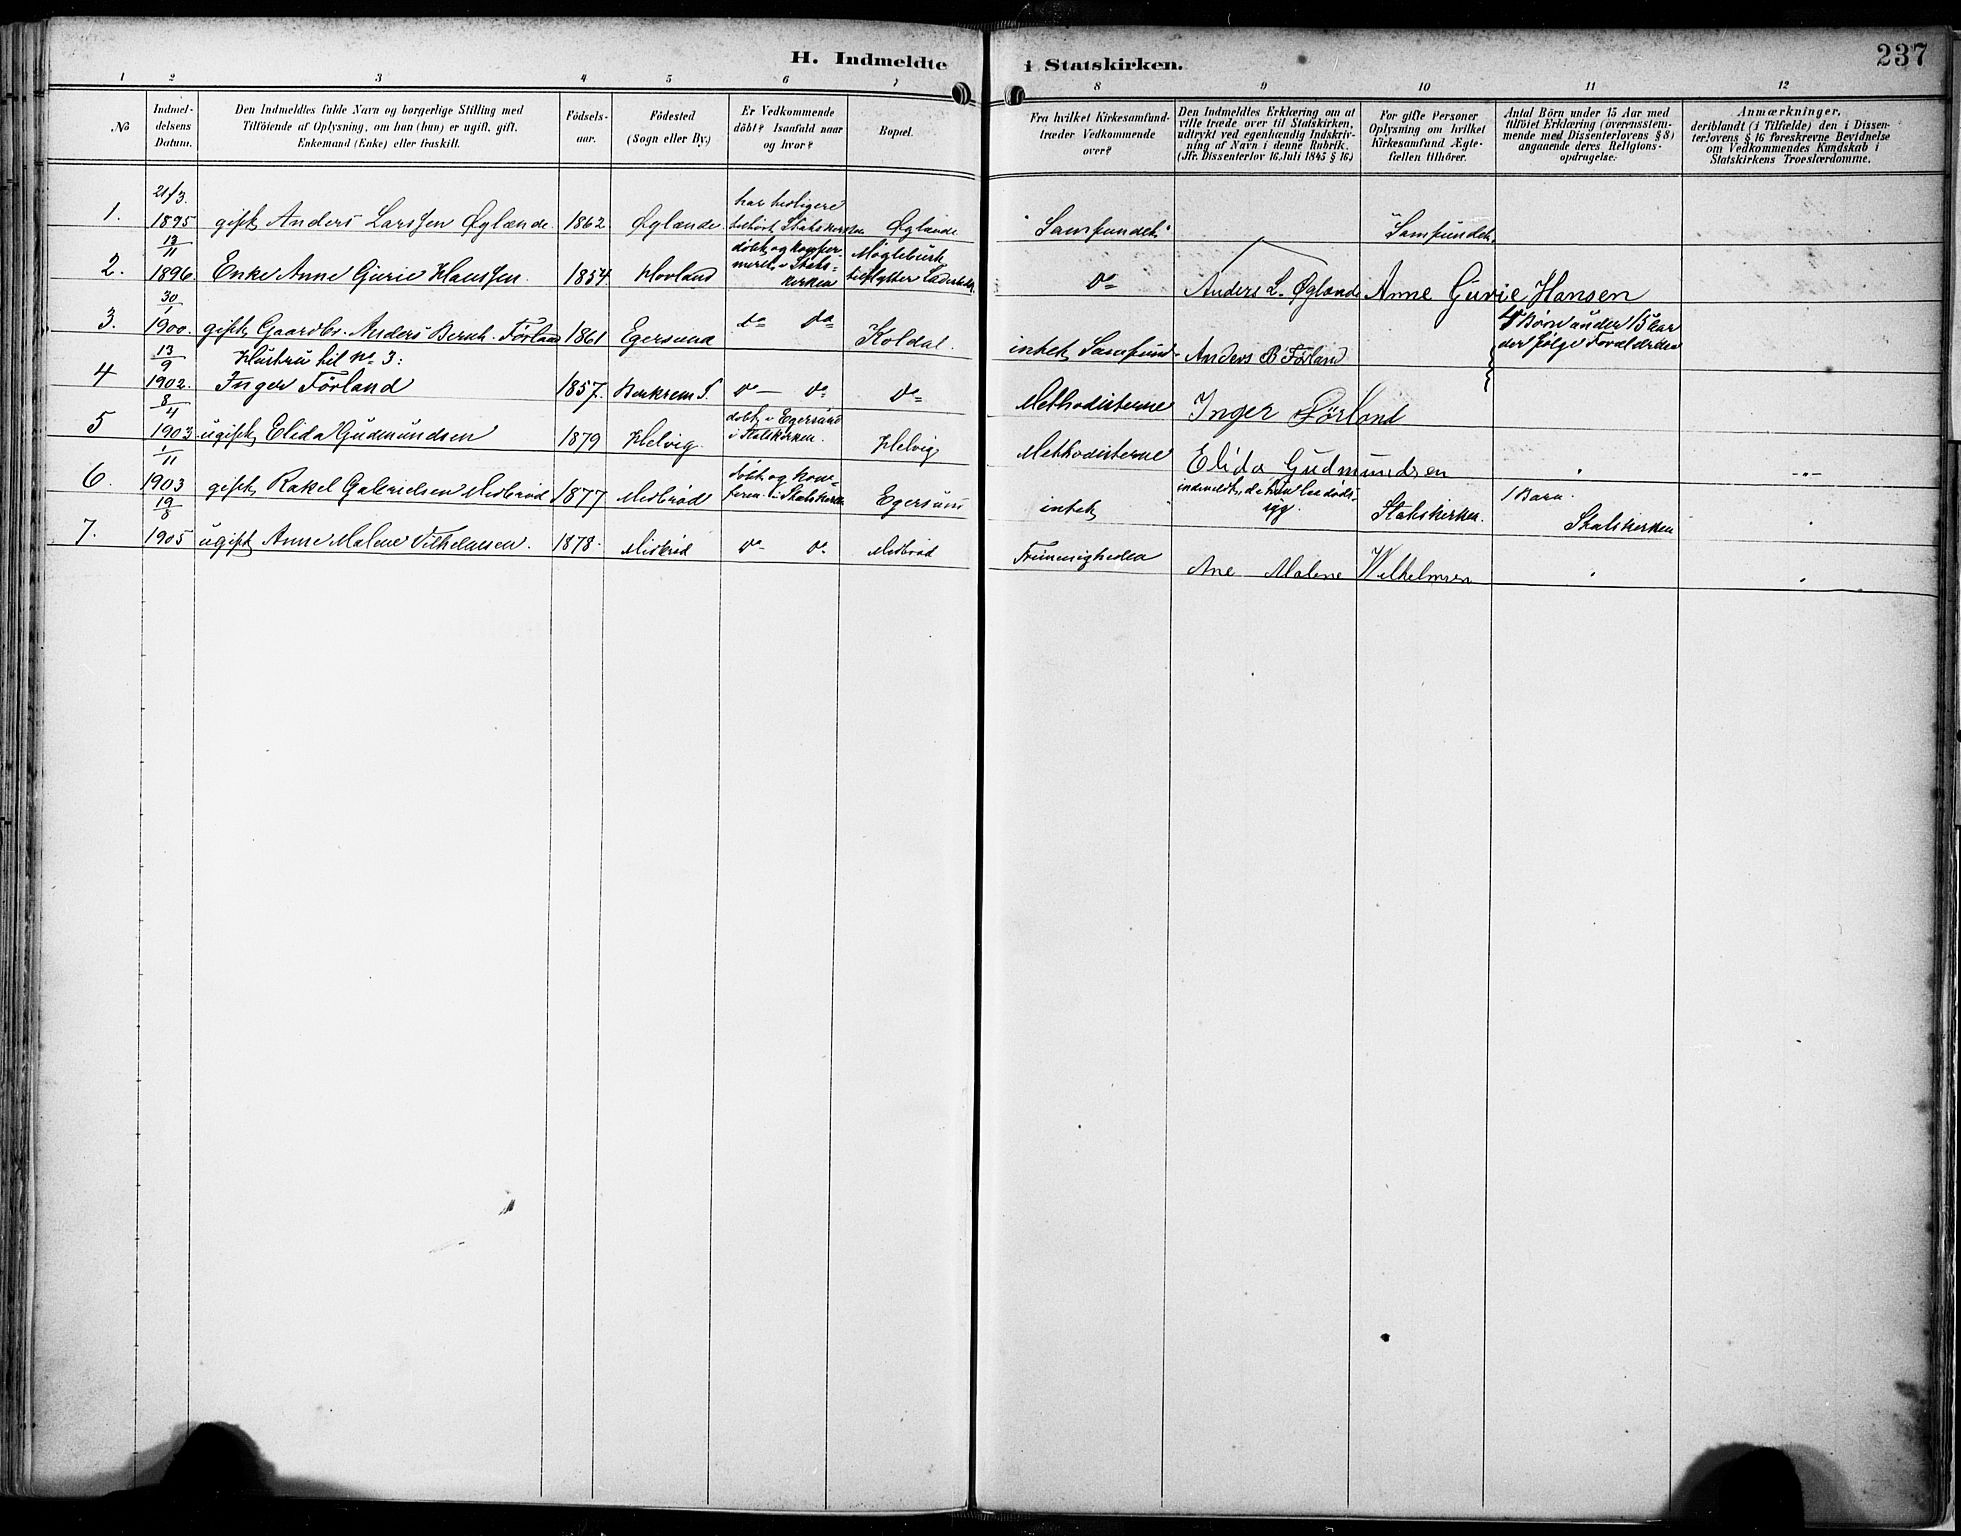 H. Indmeldte i Statskirken.
237
1 2 3 4 5 6 7 8 9 10 11 12
No
Indmel-
delsens
Datum.
Den Indmeldtes fulde Navn og borgerlige Stilling med
Tilföiende af Oplysning, om han (hun) er ugift, gift,
Enkemand (Enke) eller fraskilt.
Födsels-
aar.
Födested
(Sogn eller By.)
Er Vedkommende
döbt? Isaafald naar
og hvor?
Bopæl.
Fra hvilket Kirkesamfund
træder Vedkommende
over?
Den Indmeldtes Erklæring om at
ville træde over til Statskirken,
udtrykt ved egenhændig Indskriv-
ning af Navn i denne Rubrik.
(Jfr. Dissenterlov 16 Juli 1845 § 16)
For gifte Personer
Oplysning om hvilket
Kirkesamfund Ægte-
fællen tilhörer.
Antal Börn under 15 Aar med
tilföiet Erklæring (overensstem-
mende med Dissenterlovens § 8)
angaaende deres Religions-
opdragelse.
Anmærkninger,
deriblandt (i Tilfælde) den i Dissen-
terlovens § 16 foreskrevne Bevidnelse
om Vedkommendes Kundskab i
Statskirkens Troeslærdomme.
1. 21/3 1895 gift Anders Larssen Øglænde 1862 Øglænde
har tidligere
tilhørt Statskirken
Øglænde "Samfundet" "Samfundet"
2. 13/11 1896 Enke Anne Gurie Hanssen. 1854 Hovland
døbt og konfir-
meret i Stats-
kirken
Møglebust
tilflytter
do Anders L. Øglænde Anne Gurie Hansen
3. 30/1 1900. gift Gaardbr. Anders Bernh. Førland 1861 Egersund do do Koldal.
intet Samfund Anders B Førland
4 Børn under 15 aar
der følge Forældrene
4 13/9 1902.
Hustru til No 3:
Inger Førland 1857. Birkrem S. do — do do
Methodisterne Inger Førland
5 8/4 1903 ugift Elida Gudmundsen 1879 Helvig.
døbt i Egersund
i Statskirken.
Helvig Methodisterne Elida Gudmundsen " -"-
6. 1/11 1903 gift Rakel Gabrielsen Midbrød 1877 Midbrød
døbt og kon-
firm. i Statskirken
Egersund intet
indmeldt, da hun laa døds-
syg.
Statskirken.
1 Barn.
Statskirken "
7. 19/8 1905 ugift Anne Malene Vilhelmsen. 1878. Midbrød do do Midbrød
Frimenigheden Ane Malene Wilhelmsen " "